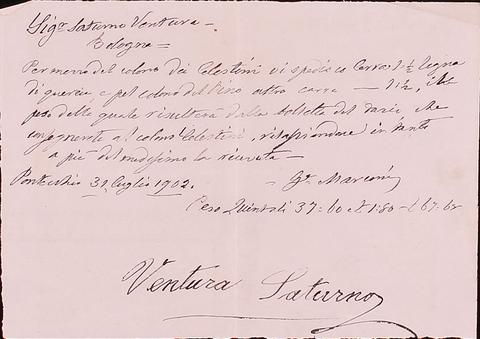 Sigr Saturno Ventura –
Bologna =
Per mezzo del colono dei Celestini vi spedisco Carra 1½ legna
di quercia e pel colono del altro carro — 1½, il
peso delle quale risulterà dalla bolletta del dazio che
al colono Celestini,
a piè del medesimo la ricevuta –
Pontecchio 31 luglio 1902. – Gē Marconi
Peso Quintali 37=60
Ventura Saturno